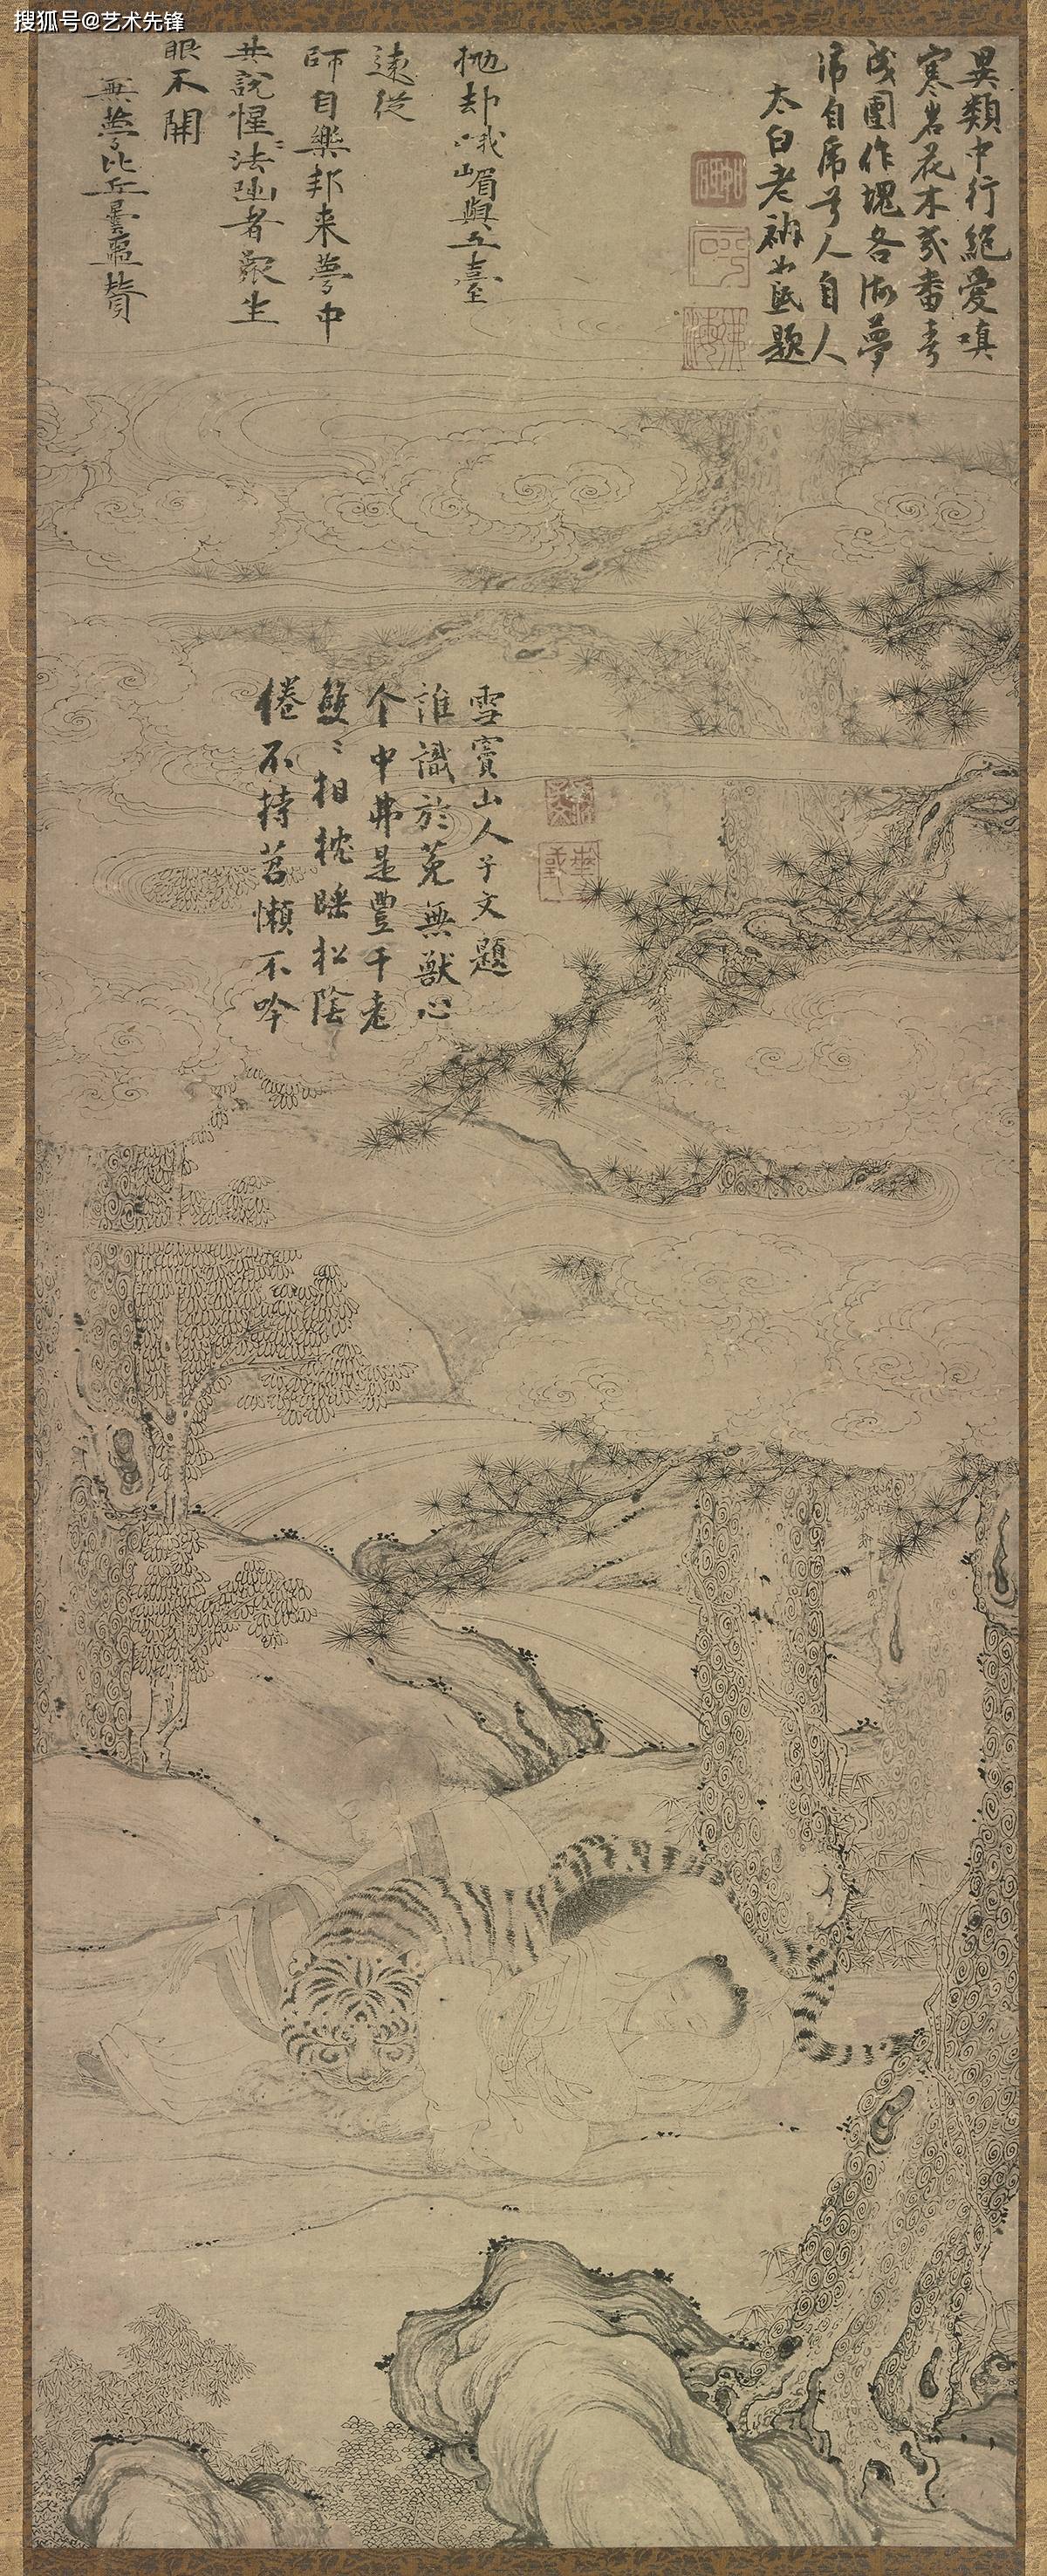 搜狐号@艺术先锋
異類中行絕愛嗔
寒岩花木幾番春
成團作塊各做夢
虎自虎兮人自人
太白老衲如砥題
拋却峨嵋與五臺
遠從
師自樂邦来夢中
共說惺〻法者生
眼不開
無夢比丘曇噩贊
倦不持苕懶不吟
雙〻相枕睡松陰
个中弗是豐干老
誰識於菟無獸心
雪竇山人子文題